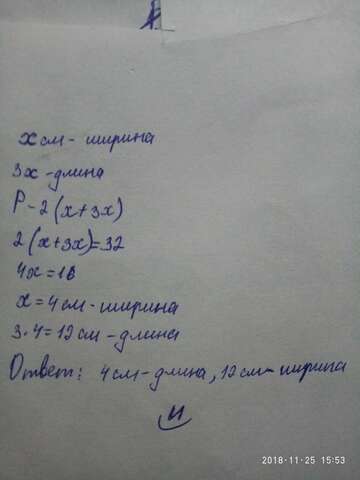 x см - ширина
3x - длина
P - 2(x+3x)
2(x+3x)=32
4x=16
x=4см-ширина
3·4=12см-длина
Ответ: 4см-длина, 12см-ширина
2018-11-25 15:53